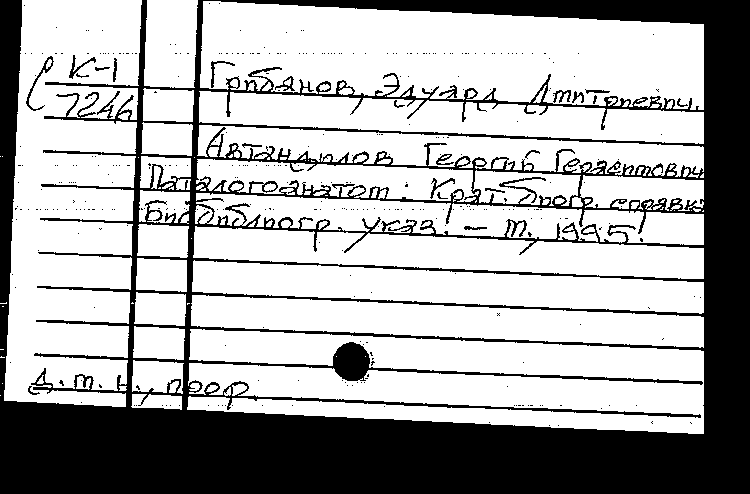 К-1
7246
Грибанов, Эдуард Дмитриевич.
Автандилов Георгий Герасимович
Паталогоанатом: Крат. биогр. справка
Биобиблиогр. указ. – М., 1995.
Д.м.н., проф.